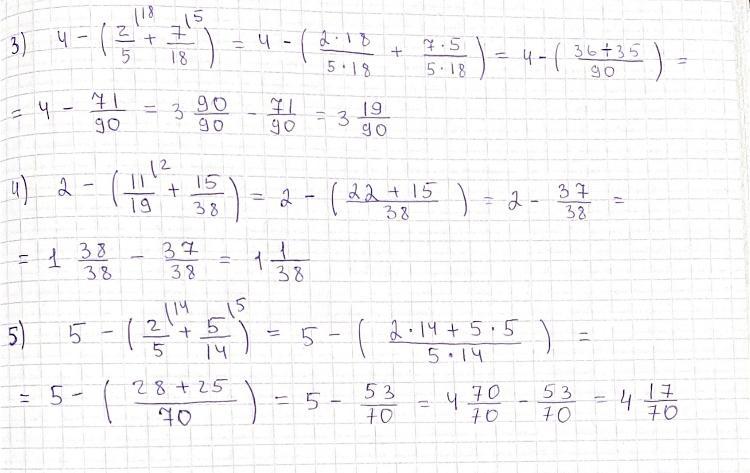 3) 4 - (2/5 ⁽¹⁸ + 7/18 ⁽⁵) = 4 - (2·18/5·18 + 7·5/5·18) = 4 - (36+35/90) =
= 4 - 71/90 = 3 90/90 - 71/90 = 3 19/90
4) 2 - (11/19 ⁽² + 15/38) = 2 - (22+15/38) = 2 - 37/38 =
= 1 38/38 - 37/38 = 1 1/38
5) 5 - (2/5 ⁽¹⁴ + 5/14 ⁽⁵) = 5 - (2·14+5·5/5·14) =
= 5 - (28+25/70) = 5 - 53/70 = 4 70/70 - 53/70 = 4 17/70